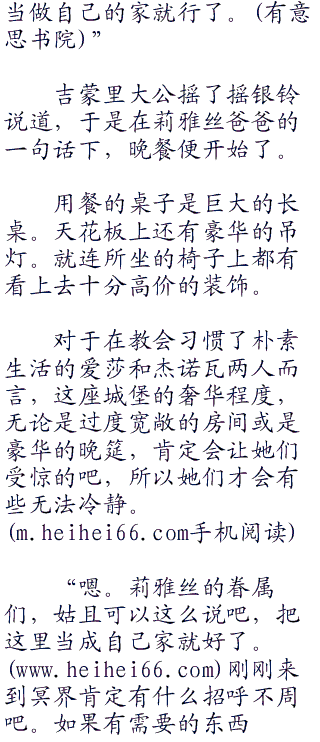 当做自己的家就行了。(有意
思书院)”
吉蒙里大公摇了摇银铃
说道，于是在莉雅丝爸爸的
一句话下，晚餐便开始了。
用餐的桌子是巨大的长
桌。天花板上还有豪华的吊
灯。就连所坐的椅子上都有
看上去十分高价的装饰。
对于在教会习惯了朴素
生活的爱莎和杰诺瓦两人而
言，这座城堡的奢华程度，
无论是过度宽敞的房间或是
豪华的晚筵，肯定会让她们
受惊的吧，所以她们才会有
些无法冷静。
(m.heihei66.com手机阅读)
“嗯。莉雅丝的眷属
们，姑且可以这么说吧，把
这里当成自己家就好了。
(www.heihei66.com)刚刚来
到冥界肯定有什么招呼不周
吧。如果有需要的东西